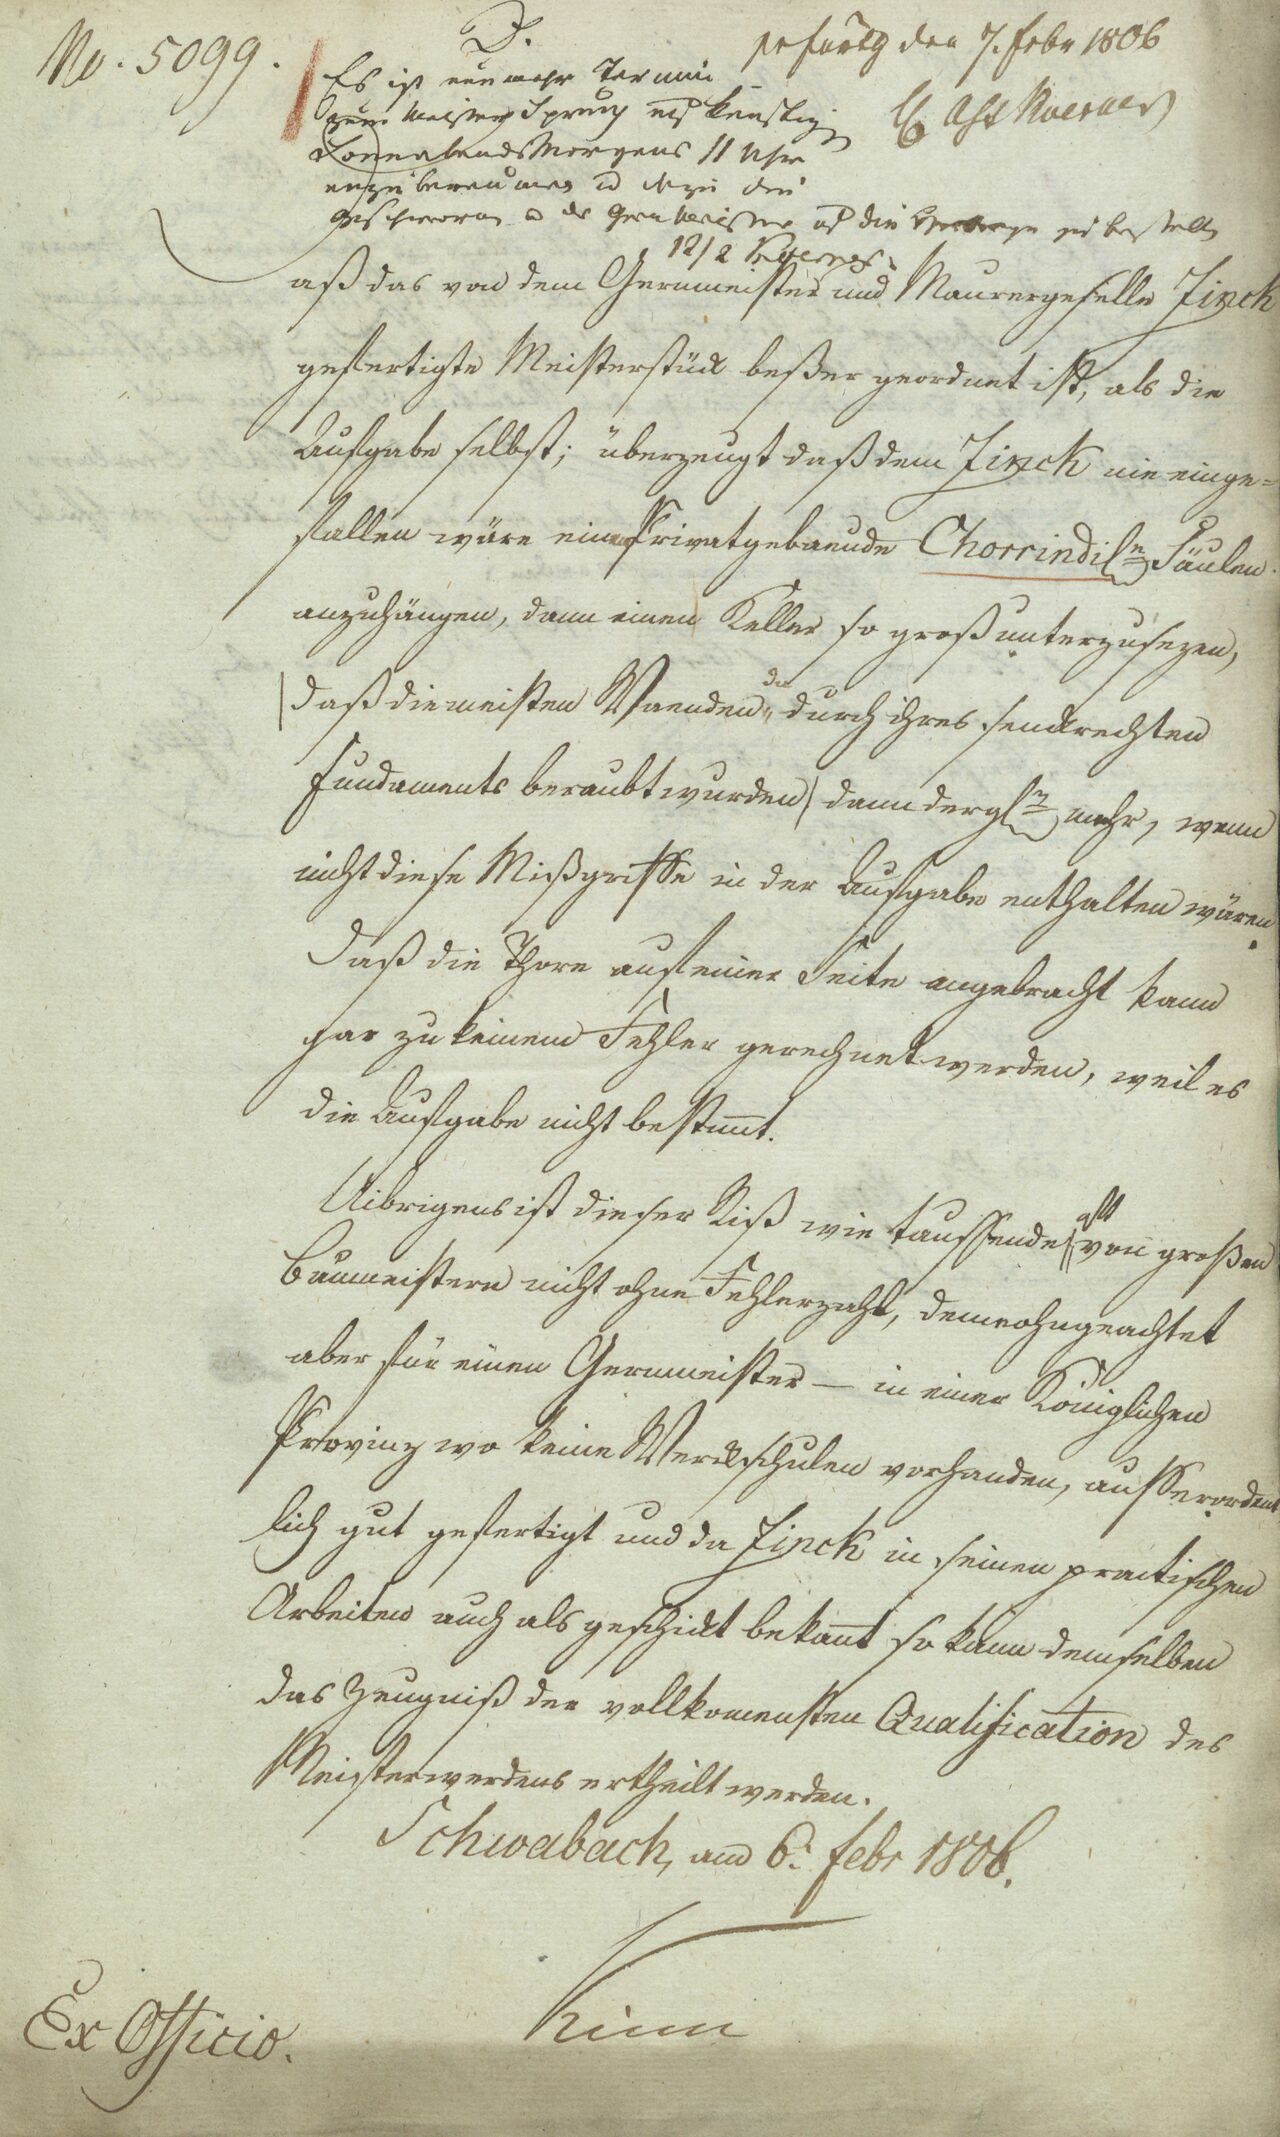 No. 5099.
D.
den 7. Febr 1806
Es ist nunmehr Termin
zum Meister Spruch auf künftigen
Sonnabends Morgens 11 Uhr
anzuberaumen u dazu die
Geschwornen u die zu bestellen
12/2
aß das von dem Germmeister und Maurergeselle Zinck
gefertigte Meisterstück beßer geordnet ist, als die
Aufgabe selbst; überzeugt daß dem Zinck nie einge=
fallen wäre einem Privatgebaeude Chorrindisn Säulen
anzuhängen, dann einen Keller so groß unterzusezen,
daß die meisten Waenden dadurch ihres senckrechten
Fundaments beraubt wurden) dann dergln mehr, wenn
nicht diese Mißgriffe in der Aufgabe enthalten wären.
Daß die Thore auf einer Seite angebracht kann
gar zu keinem Fehler gerechnet werden, weil es
die Aufgabe nicht bestimt.
Uibrigens ist dieser Riß wie taussende oft von großen
Baumeistern nicht ohne Fehlerzahl, demeohngeachtet
aber für einen Germmeister — in einer Königlichen
Provinz wo keine Werckschulen vorhanden, ausserordent
lich gut gefertigt und da Zinck in seinen practischen
Arbeiten auch als geschickt bekant so kann demselben
das Zeugniß der vollkomensten Qualification des
Meisterwerdens ertheilt werden.
Schwabach, am 6. Febr 1806.
Ex Officio.